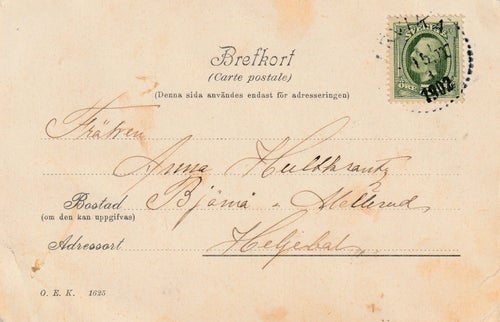 Brefkort
(Carte postale)
(Denna sida användes endast för adresseringen)
1902
Fröken
Anna Hultkrantz
Bostad
(om den kan uppgifvas)
Mellerud
Adressort
O. E. K. 1625